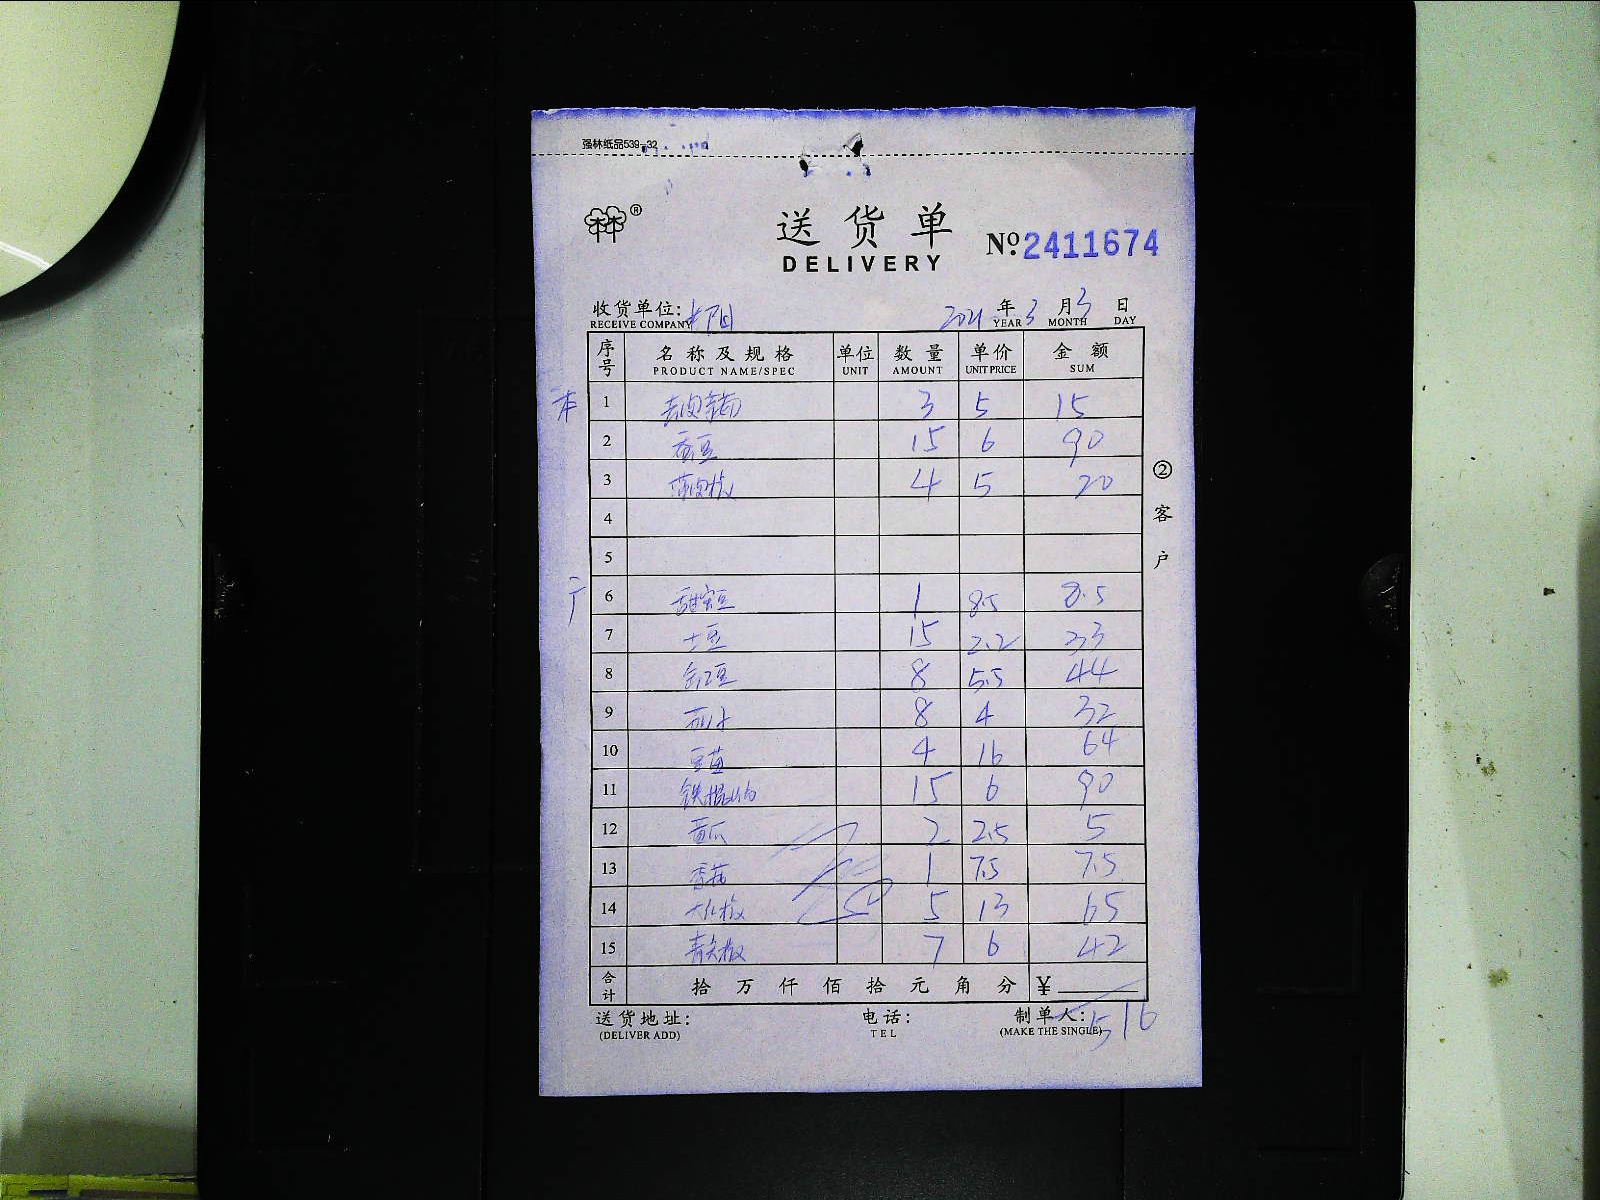 强林纸品539-32
送货单 №2411674
DELIVERY
收货单位: 2021年3月3日
RECEIVE COMPANY YEAR MONTH DAY
序号 名称及规格 单位 数量 单价 金额
PRODUCT NAME/SPEC UNIT AMOUNT UNIT PRICE SUM
本 1 3 5 15
2 蚕豆 15 6 90
3 薄皮椒 4 5 20
4
5
广 6 甜蜜豆 1 8.5 8.5
7 土豆 15 2.2 33
8 豆 8 5.5 44
9 8 4 32
10 豆苗 4 16 64
11 铁棍山药 15 6 90
12 黄瓜 2 2.5 5
13 香菇 1 7.5 7.5
14 5 13 65
15 青尖椒 7 6 42
合计 拾万仟佰拾元角分 ¥
516
送货地址: 电话: 制单人:
(DELIVER ADD) TEL (MAKE THE SINGLE)
②客户